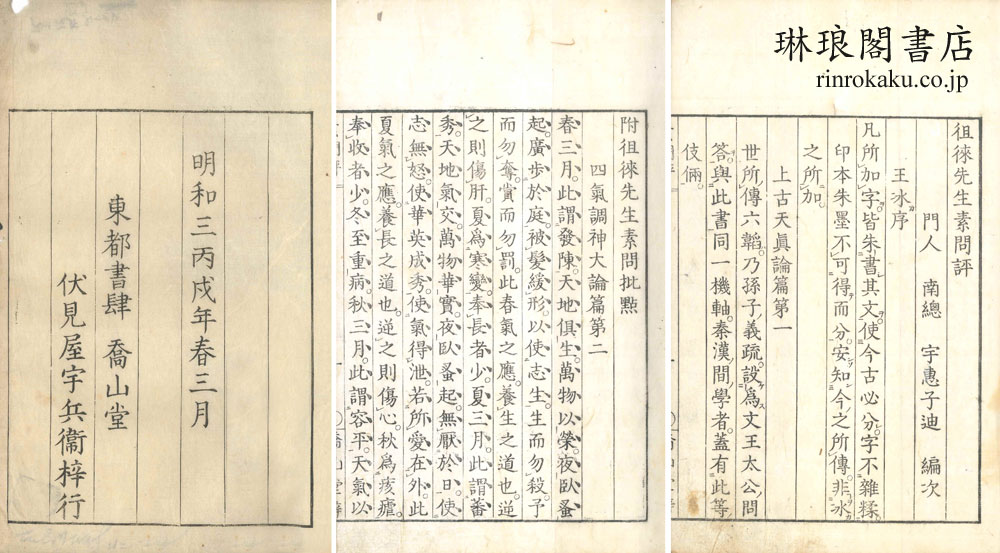 琳琅閣書店
rinrokaku.co.jp
徂徠先生素問評
門人 南總 宇惠子迪 編次
王冰序
凡所加字。皆朱書其文。使今古必分。字不雜糅。
印本朱墨不可得而分。安知今之所傳。非冰
之所加
上古天眞論篇第一
世所傳六韜。乃孫子義疏。設爲文王太公問
答。與此書同一機軸。秦漢間學者。蓋有此等
伎倆。
附徂徠先生素問批點
四氣調神大論篇第二
春三月。此謂發陳。天地俱生。萬物以榮。夜臥蚤
起。廣步於庭。被髮緩形。以使志生。生而勿殺。予
而勿奪。賞而勿罰。此春氣之應。養生之道也。逆
之則傷肝。夏爲寒變。奉長者少。夏三月。此謂蕃
秀。天地氣交。萬物華實。夜臥蚤起。無厭於日。使
志無怒。使華英成秀。使氣得泄。若所愛在外。此
夏氣之應。養長之道也。逆之則傷心。秋爲痎瘧。
奉收者少。冬至重病。秋三月。此謂容平。天氣以
明和三丙戌年春三月
東都書肆 喬山堂
伏見屋宇兵衞梓行